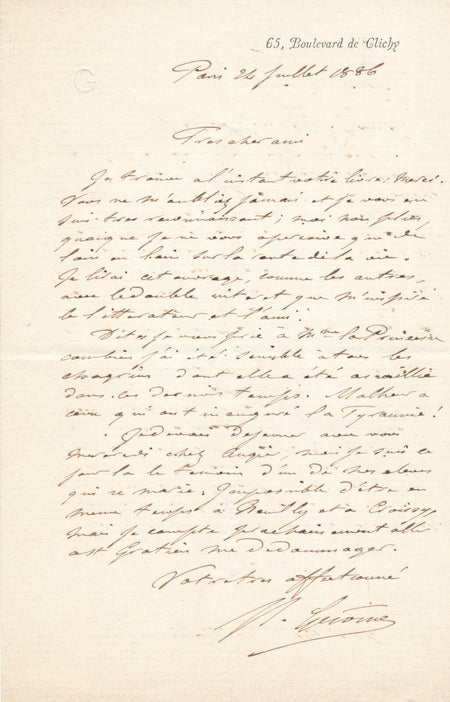 65, Boulevard de Clichy
G
Paris 24 juillet 1886
Tres cher ami
Je trouve a l'instant votre livre; merci.
Vous ne m'oubliez jamais et je vous en
suis tres reconnaissant; moi non plus,
quoique je ne vous apercoive que de
loin en loin sur la route de la vie.
Je lirai cet ouvrage, comme les autres,
avec le double interet que m'inspire
le litterateur et l'ami.
Dites je vous prie à Mme la Princesse
combien j'ai été sensible a tous les
chagrins dont elle a été assaillie
dans ces derniers temps. Malheur a
ceux qui ont inauguré la Tyrannie!
Je devais dejeuner avec vous
mercredi chez Augier, mais je suis ce
jour la le temoin d'un de mes eleves
qui se marie. Impossible d'être en
meme temps à Neuilly et a Croissy,
mais je compte prochainement aller
a St Gratien me dedommager.
Votre tres affectionné
Gerome